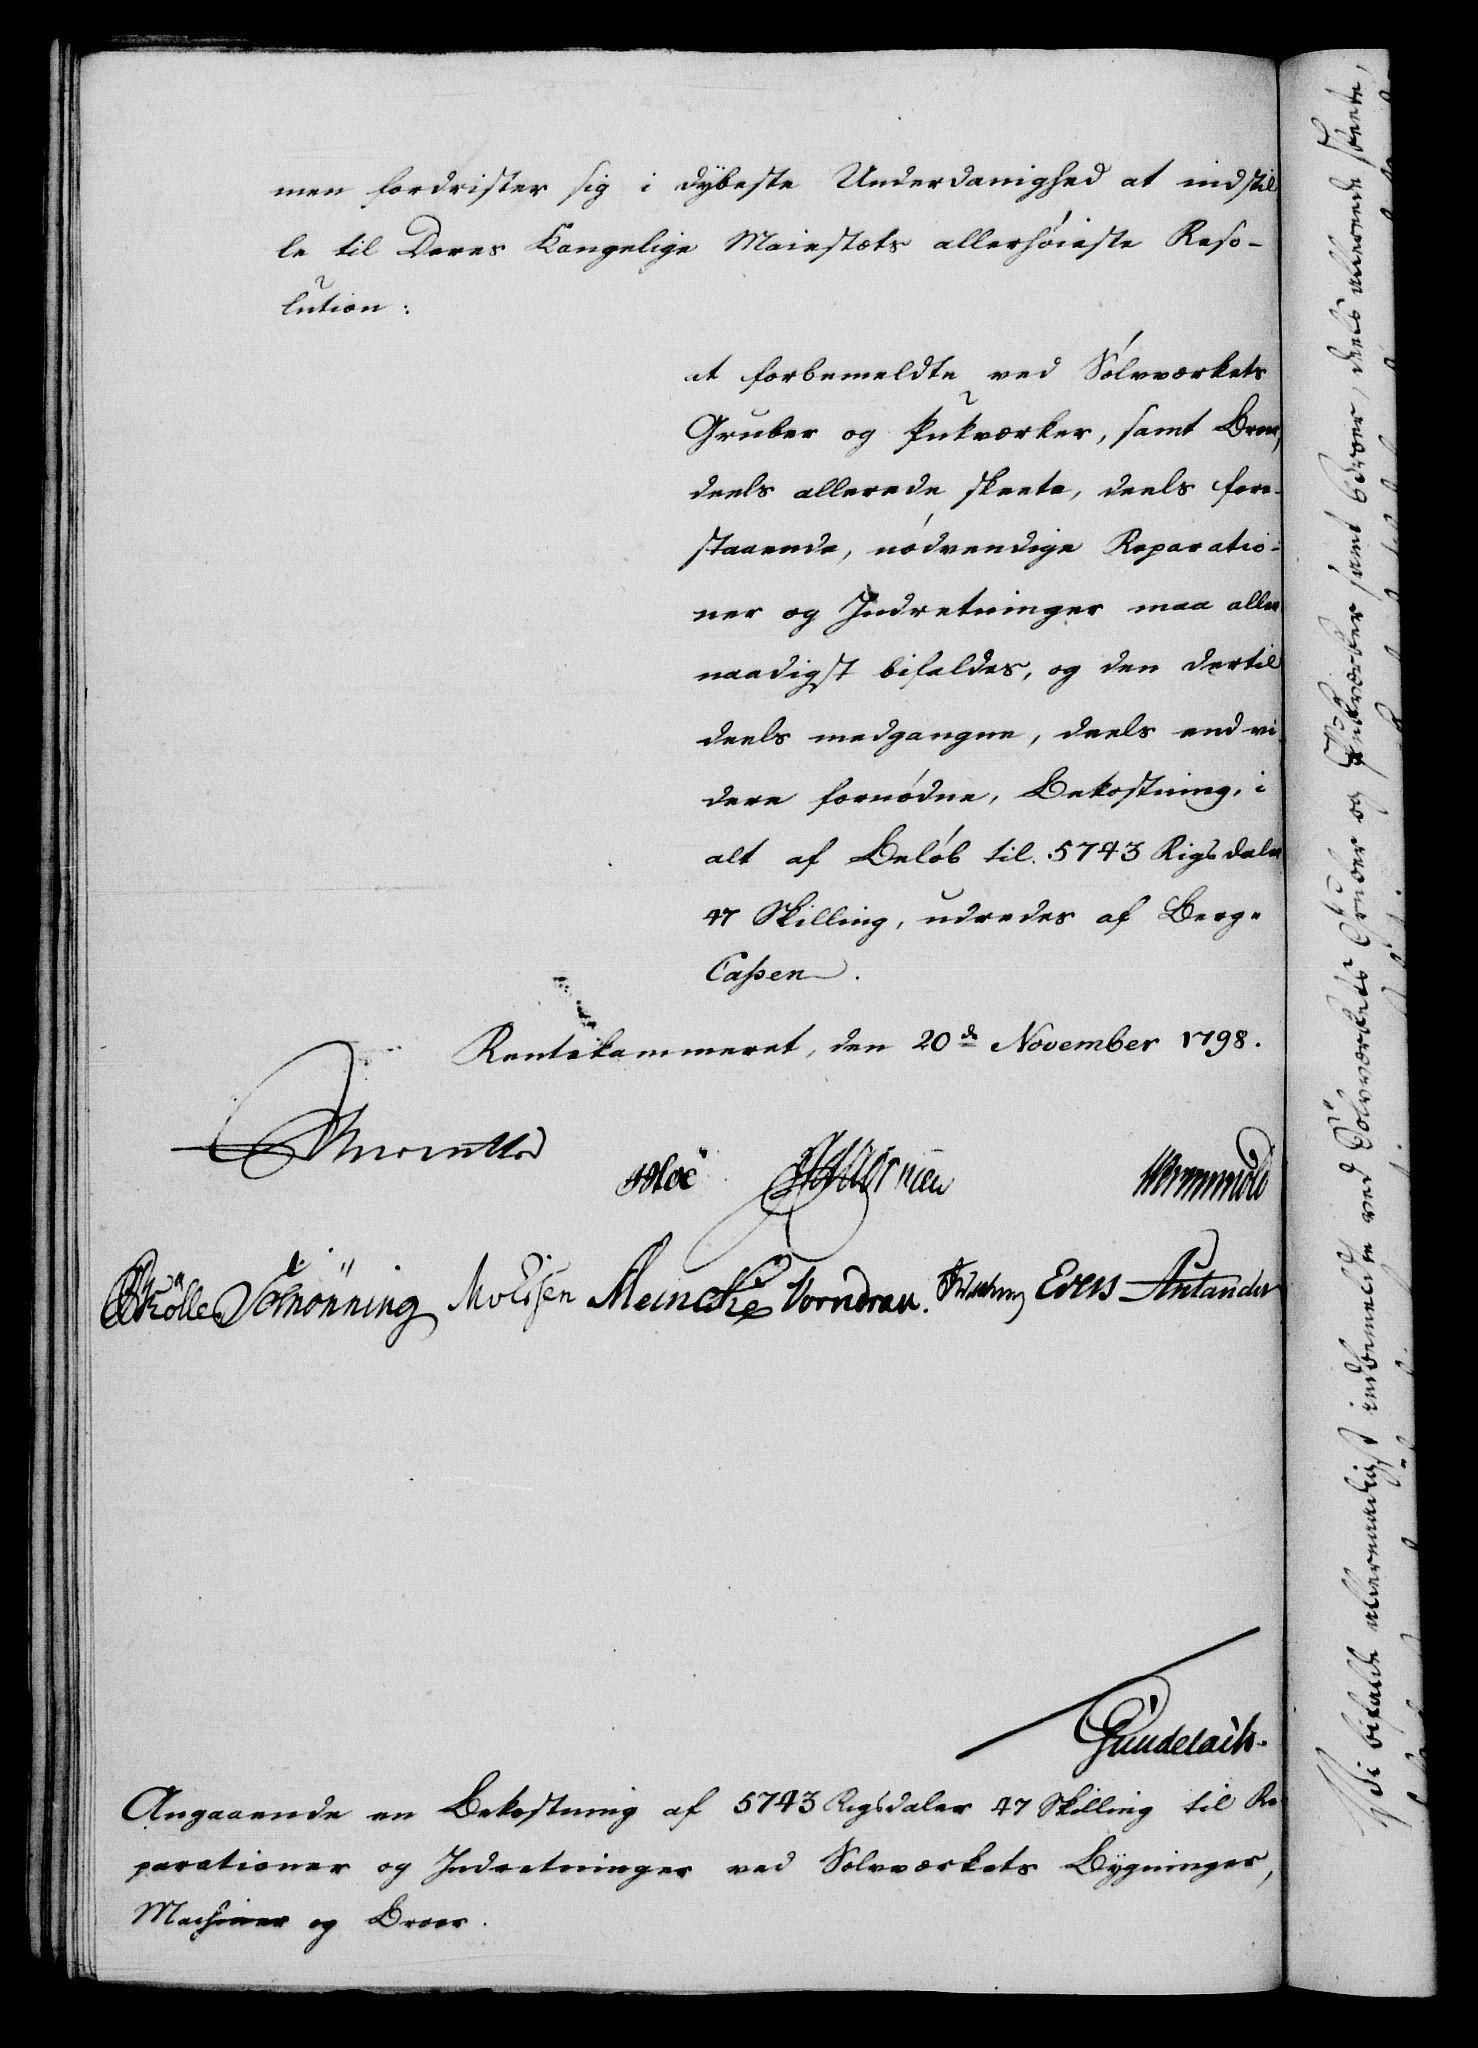 men fordrister sig i dÿbeste Underdanighed at indstil
le til Deres Kongelige Maiestæts allerhøieste Reso-
lution:
at forbemeldte ved Sølvværkets
Gruber og Pukværker, samt Broer,
deels allerede skeete, deels fore-
staaende, nödvendige Reparatio-
ner og Indretninger maa aller
naadigst bifaldes, og den dertil
deels medgangne, deels end vi-
dere fornødne, Bekostning, i
alt af Beløb til 5743 Rigsdaler
47 Skilling, udredes af Berg-
Cassen.
Rentekammeret, den 20de November 1798.
Schrønning Meincke Vorndran. Evers
Gundelach.
Angaaende en Bekostning af 5743 Rigsdaler 47 Skilling til Re-
parationer og Indretninger ved Sølvværkets Bÿgninger,
Machiner og Broer.
Vi bifalde allernaadigst indbemeldte ved Sølvværkets Gruber og Pukværker samt Broer, deels allerede skeete,